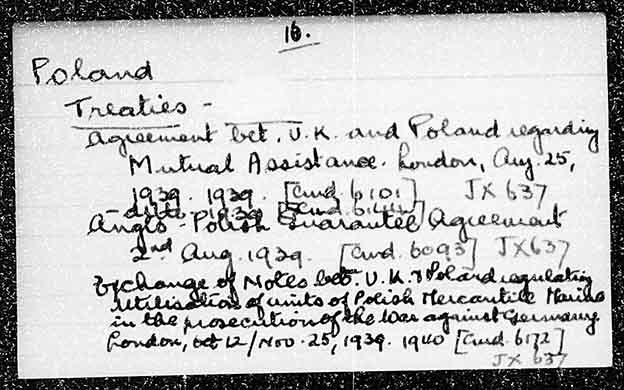 16.
Poland
Treaties -
Agreement bet. U.K. and Poland regarding
Mutual Assistance. London, Aug. 25,
1939. 1939. [Cmd. 6101] JX 637
- ditto - 1939 [Cmd.
Anglo-Polish Guarantee Agreement
2nd Aug. 1939. [Cmd. 6093] JX637
Exchange of Notes bet. U.K. & Poland regulating
utilisation of units of Polish Mercantile Marine
in the prosecution of the War against Germany.
London, Oct 12/Nov. 25, 1939. 1940 [Cmd. 6172]
JX 637